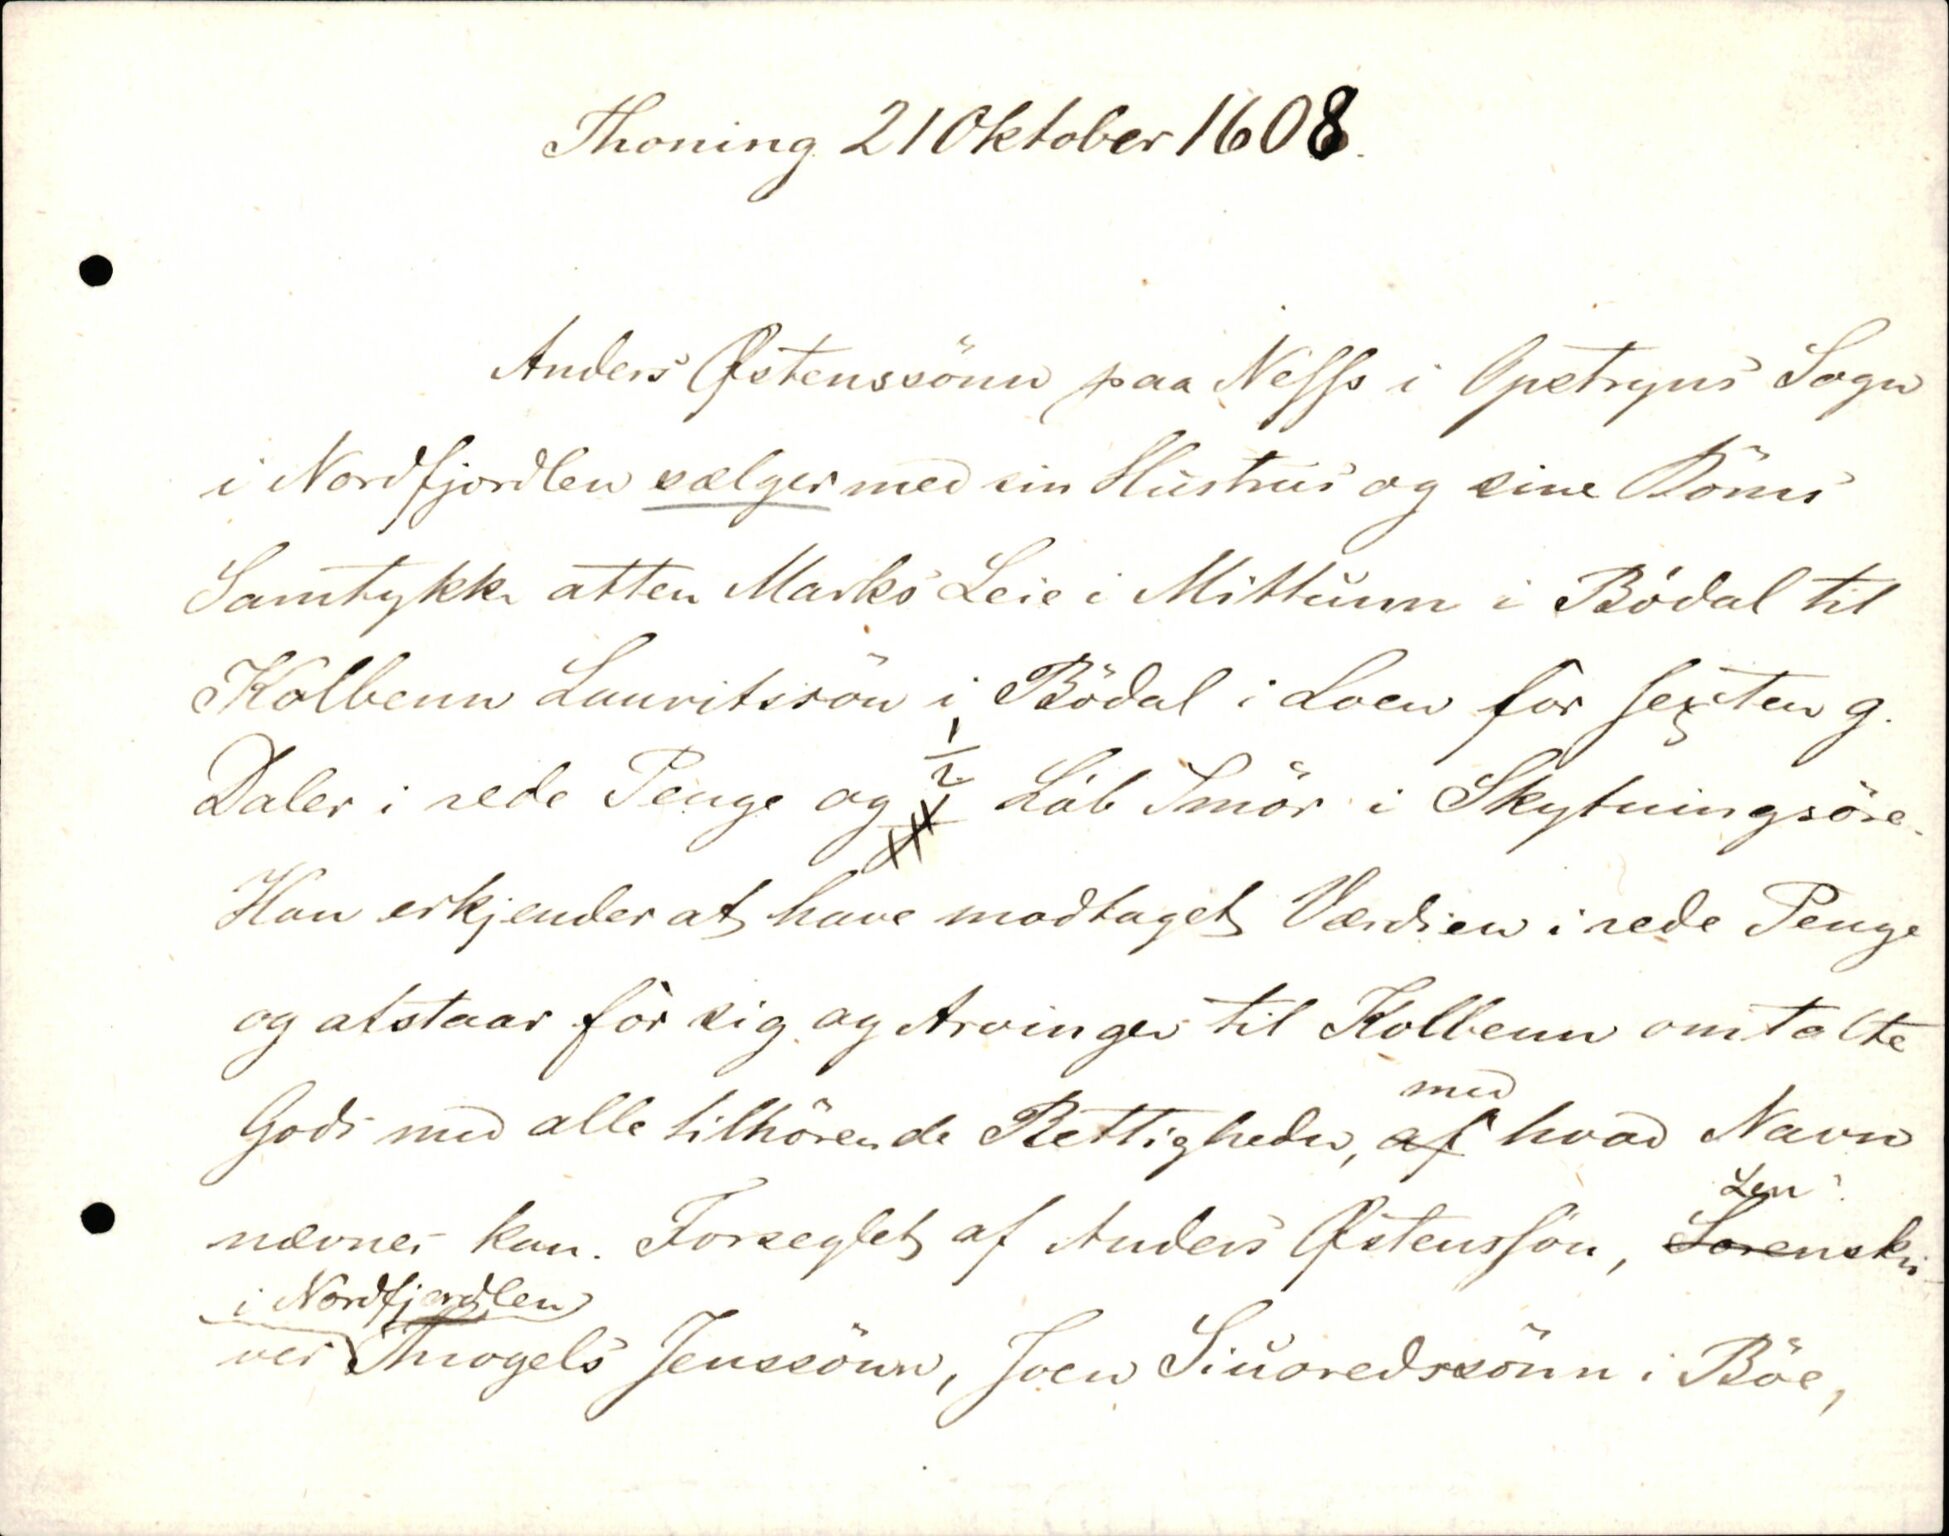 Thoning 21 Oktober 1608.
Anders Østenssönn paa Neffs i Opstryns Sogn
i Nordfjordlen sælger med sin Hustrus og sine Börns
Samtykke atten Marks Leie i Mittunn i Bödal til
Kolbenn Lauritssön i Bödal i Loen for sexten g.
Daler i rede Penge og 1/2 Löb Smör i Skytningsöre.
Han erkjender at have modtaget Værdien i rede Penge
og afstaar for sig og Arvinger til Kolbenn omtalte
med
Gods med alle tilhörende Rettigheder, af hvad Navn
Len
nævnes kan. Forseglet af Anders Østensson, Sorenskri-
i Nordfjordlen
ver Throgels Jenssönn, Joen Siuoredssönn i Böe,